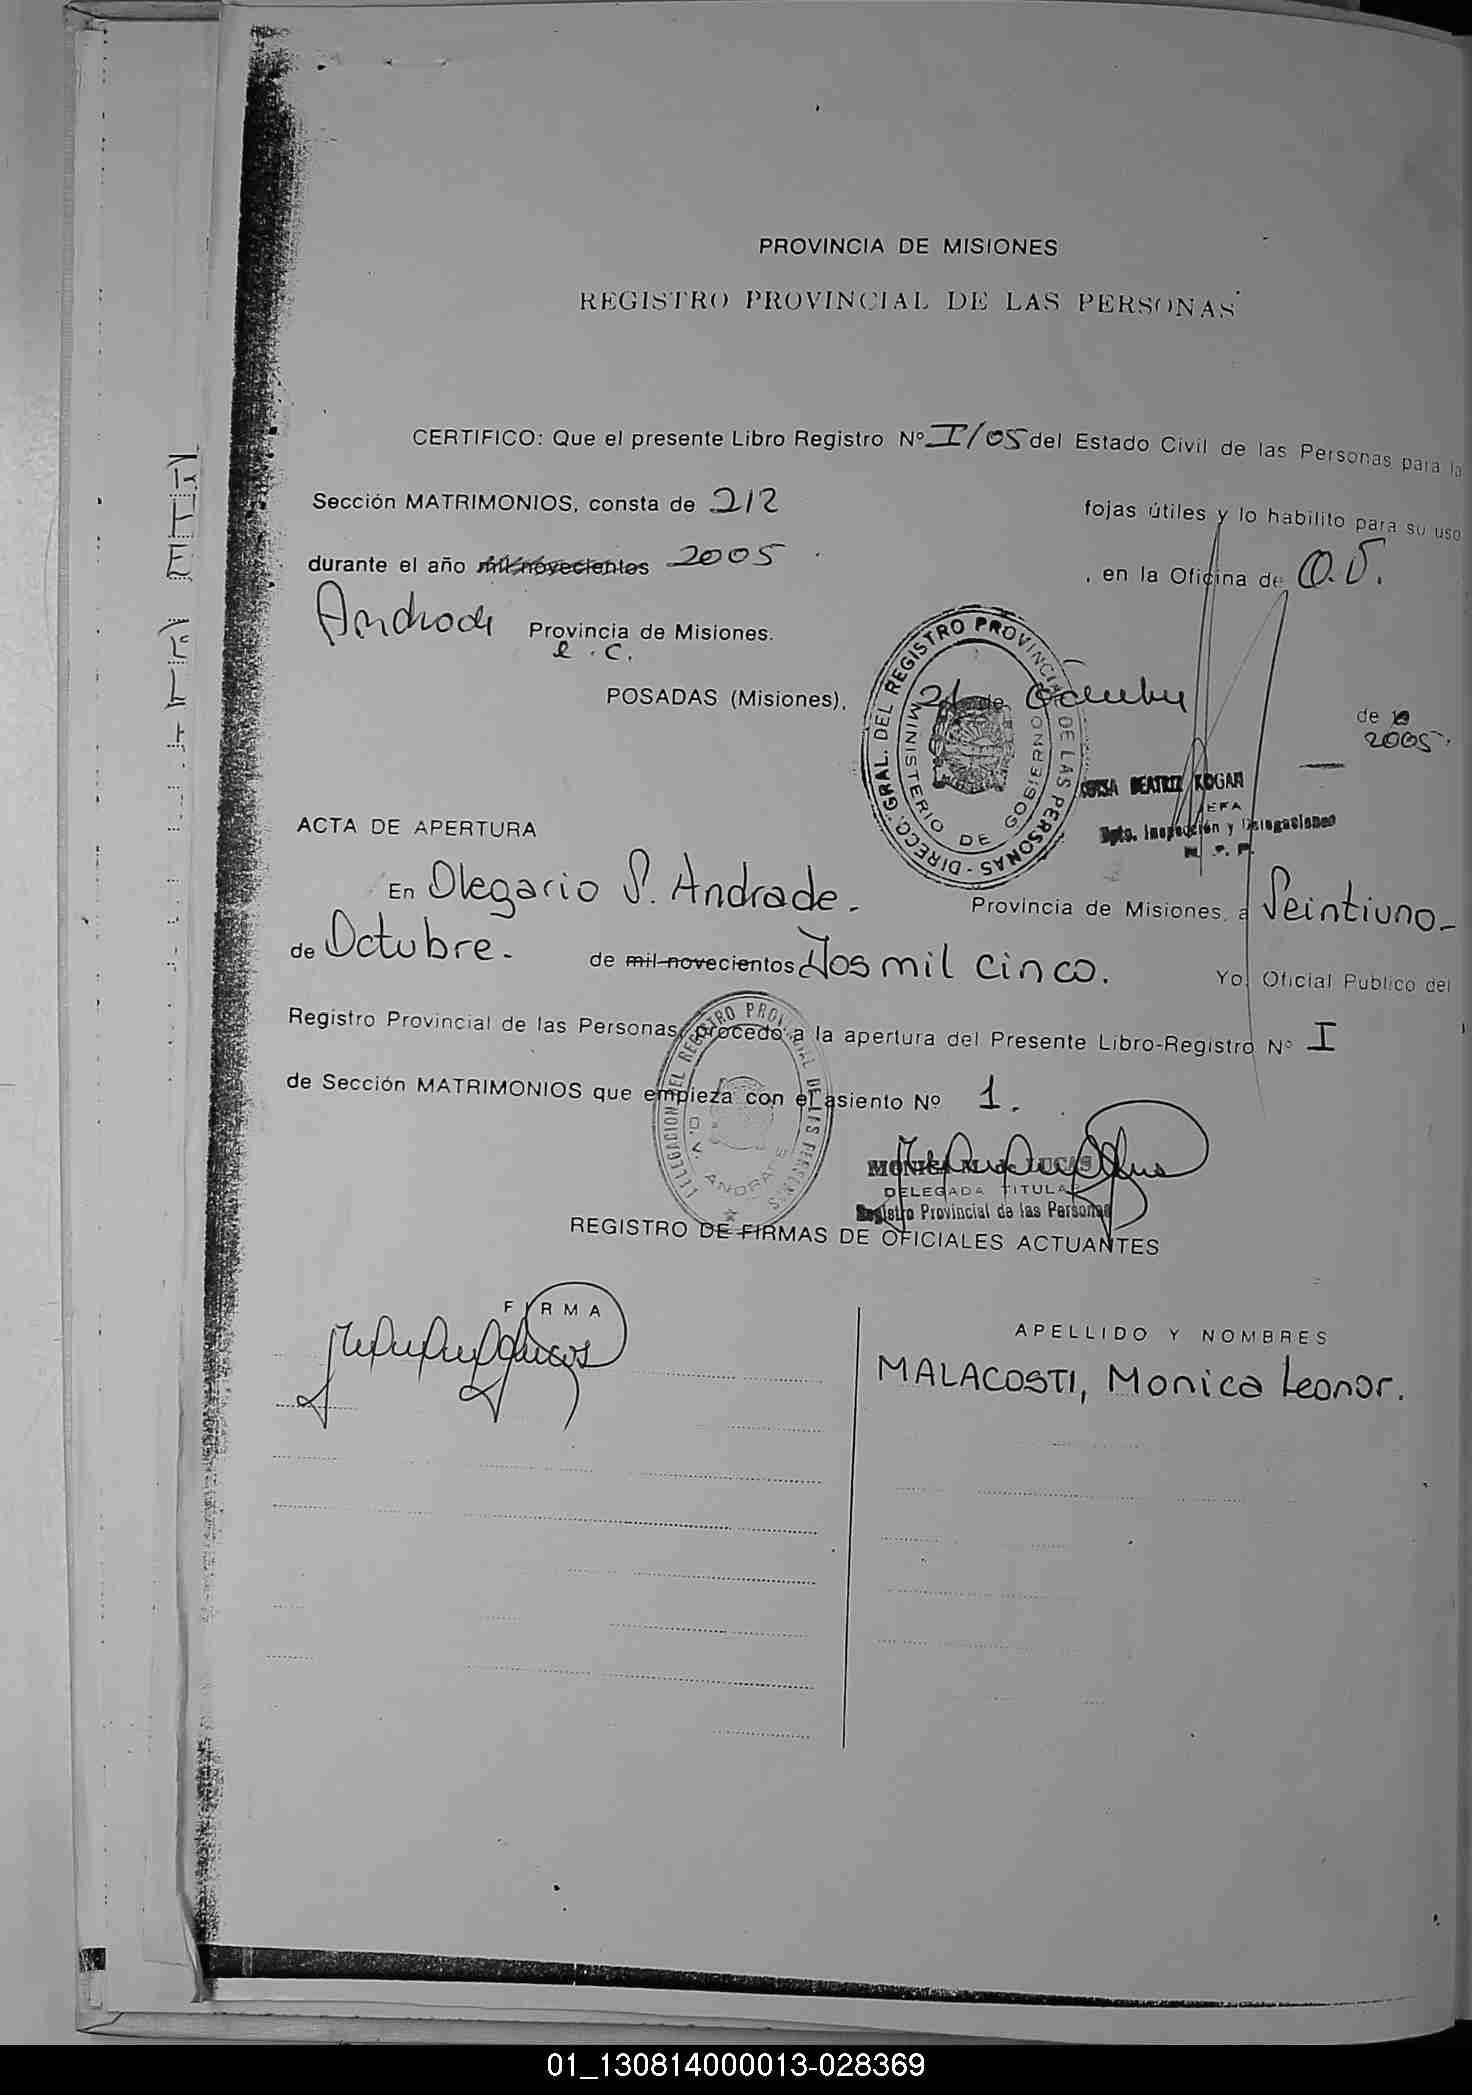 PROVINCIA DE MISIONES
REGISTRO PROVINCIAL DE LAS PERSONAS
CERTIFICO: Que el presente Libro Registro Nº I/05 del Estado Civil de las Personas para la
Sección MATRIMONIOS, consta de 212 fojas útiles y lo habilito para su uso
durante el año mil novecientos 2005 , en la Oficina de O.V.
Andrade Provincia de Misiones.
e.c.
POSADAS (Misiones), 21 de Octubre de 19
2005.
DIRECC. GRAL. DEL REGISTRO PROVINCIAL DE LAS PERSONAS - MINISTERIO DE GOBIERNO
BEATRIZ KOGAN
JEFA
Dpto. Inspección y Delegaciones
ACTA DE APERTURA
En Olegario V. Andrade. Provincia de Misiones, a Veintiuno
de Octubre. de mil novecientos Dos mil cinco. Yo, Oficial Publico del
Registro Provincial de las Personas, procedo a la apertura del Presente Libro-Registro Nº I
de Sección MATRIMONIOS que empieza con el asiento Nº 1.
DELEGACION DEL REGISTRO PROVINCIAL DE LAS PERSONAS O.V. ANDRADE
MONICA M. de LUCAS
DELEGADA TITULAR
Registro Provincial de las Personas
REGISTRO DE FIRMAS DE OFICIALES ACTUANTES
FIRMA
APELLIDO Y NOMBRES
MALACOSTI, Monica Leonor.
01_130814000013-028369